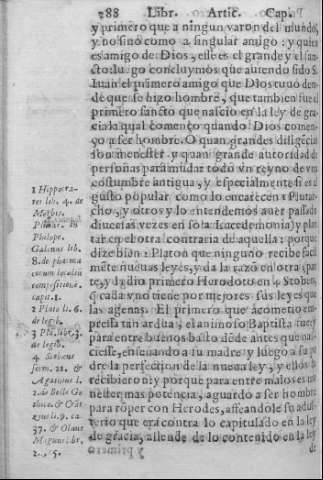 288 Libr. Artic. Cap.
y primero que a ningun varon del mundo,
y no sino como a singular amigo: y quien
es amigo de Dios, esse es el grande y el san-
cto: luego concluymos que auiendo sido S.
Iuan el primero amigo que Dios tuuo den-
de que se hizo hombre, que tambien fue el
primero sancto que nascio en la ley de gra-
cia: la qual començo quando Dios comen-
ço a ser hombre. O quan grandes diligecias
son menester y quan grande autoridad de
personas para mudar todo vn reyno de vna
costumbre antigua, y especialmente si es de
gusto popular como lo encarecen Plutar-
cho, y otros y lo entendemos auer passado
diuersas vezes en sola Lacedemonia) y plan-
tar en el otra contraria de aquella: porque
dize bien Platon que ninguno recibe facil
mẽte nueuas leyes, y da la razõ en otra par-
te, y la dio primero Herodoto en Stobeo,
q̃ cada vno tiene por mejores sus leyes que
las agenas. El primero que acometio em-
pressa tan ardua, el animoso Baptista fue: y
para entre buenos basto dõde antes que na-
ciesse, enseñando a su madre y luego a su pa
dre la perfection de la nueua ley, y ellos la
recibieron: y porque para entre malos es me
nester mas potencia, aguardo a ser hombre
para rõper con Herodes, affeandole su adul-
terio que era contra lo capitulado en la ley
de gracia, allende de lo contenido en la ley
de
1 Hippocra-
tes lib. 4. de
Morbis.
in
Philope.
Galenus lib.
8. de pharma
corum localiũ
compositione.
capit. 1.
2 Plato li. 6.
de legib.
3 Pla. lib. 3.
de legib.
4 Stobæus
serm. 21. &
Agathius l.
2. de Bello Go
thico. & 
lib. 9. ca.
37. & Olaus
Magnus lib.
2. c. 5.